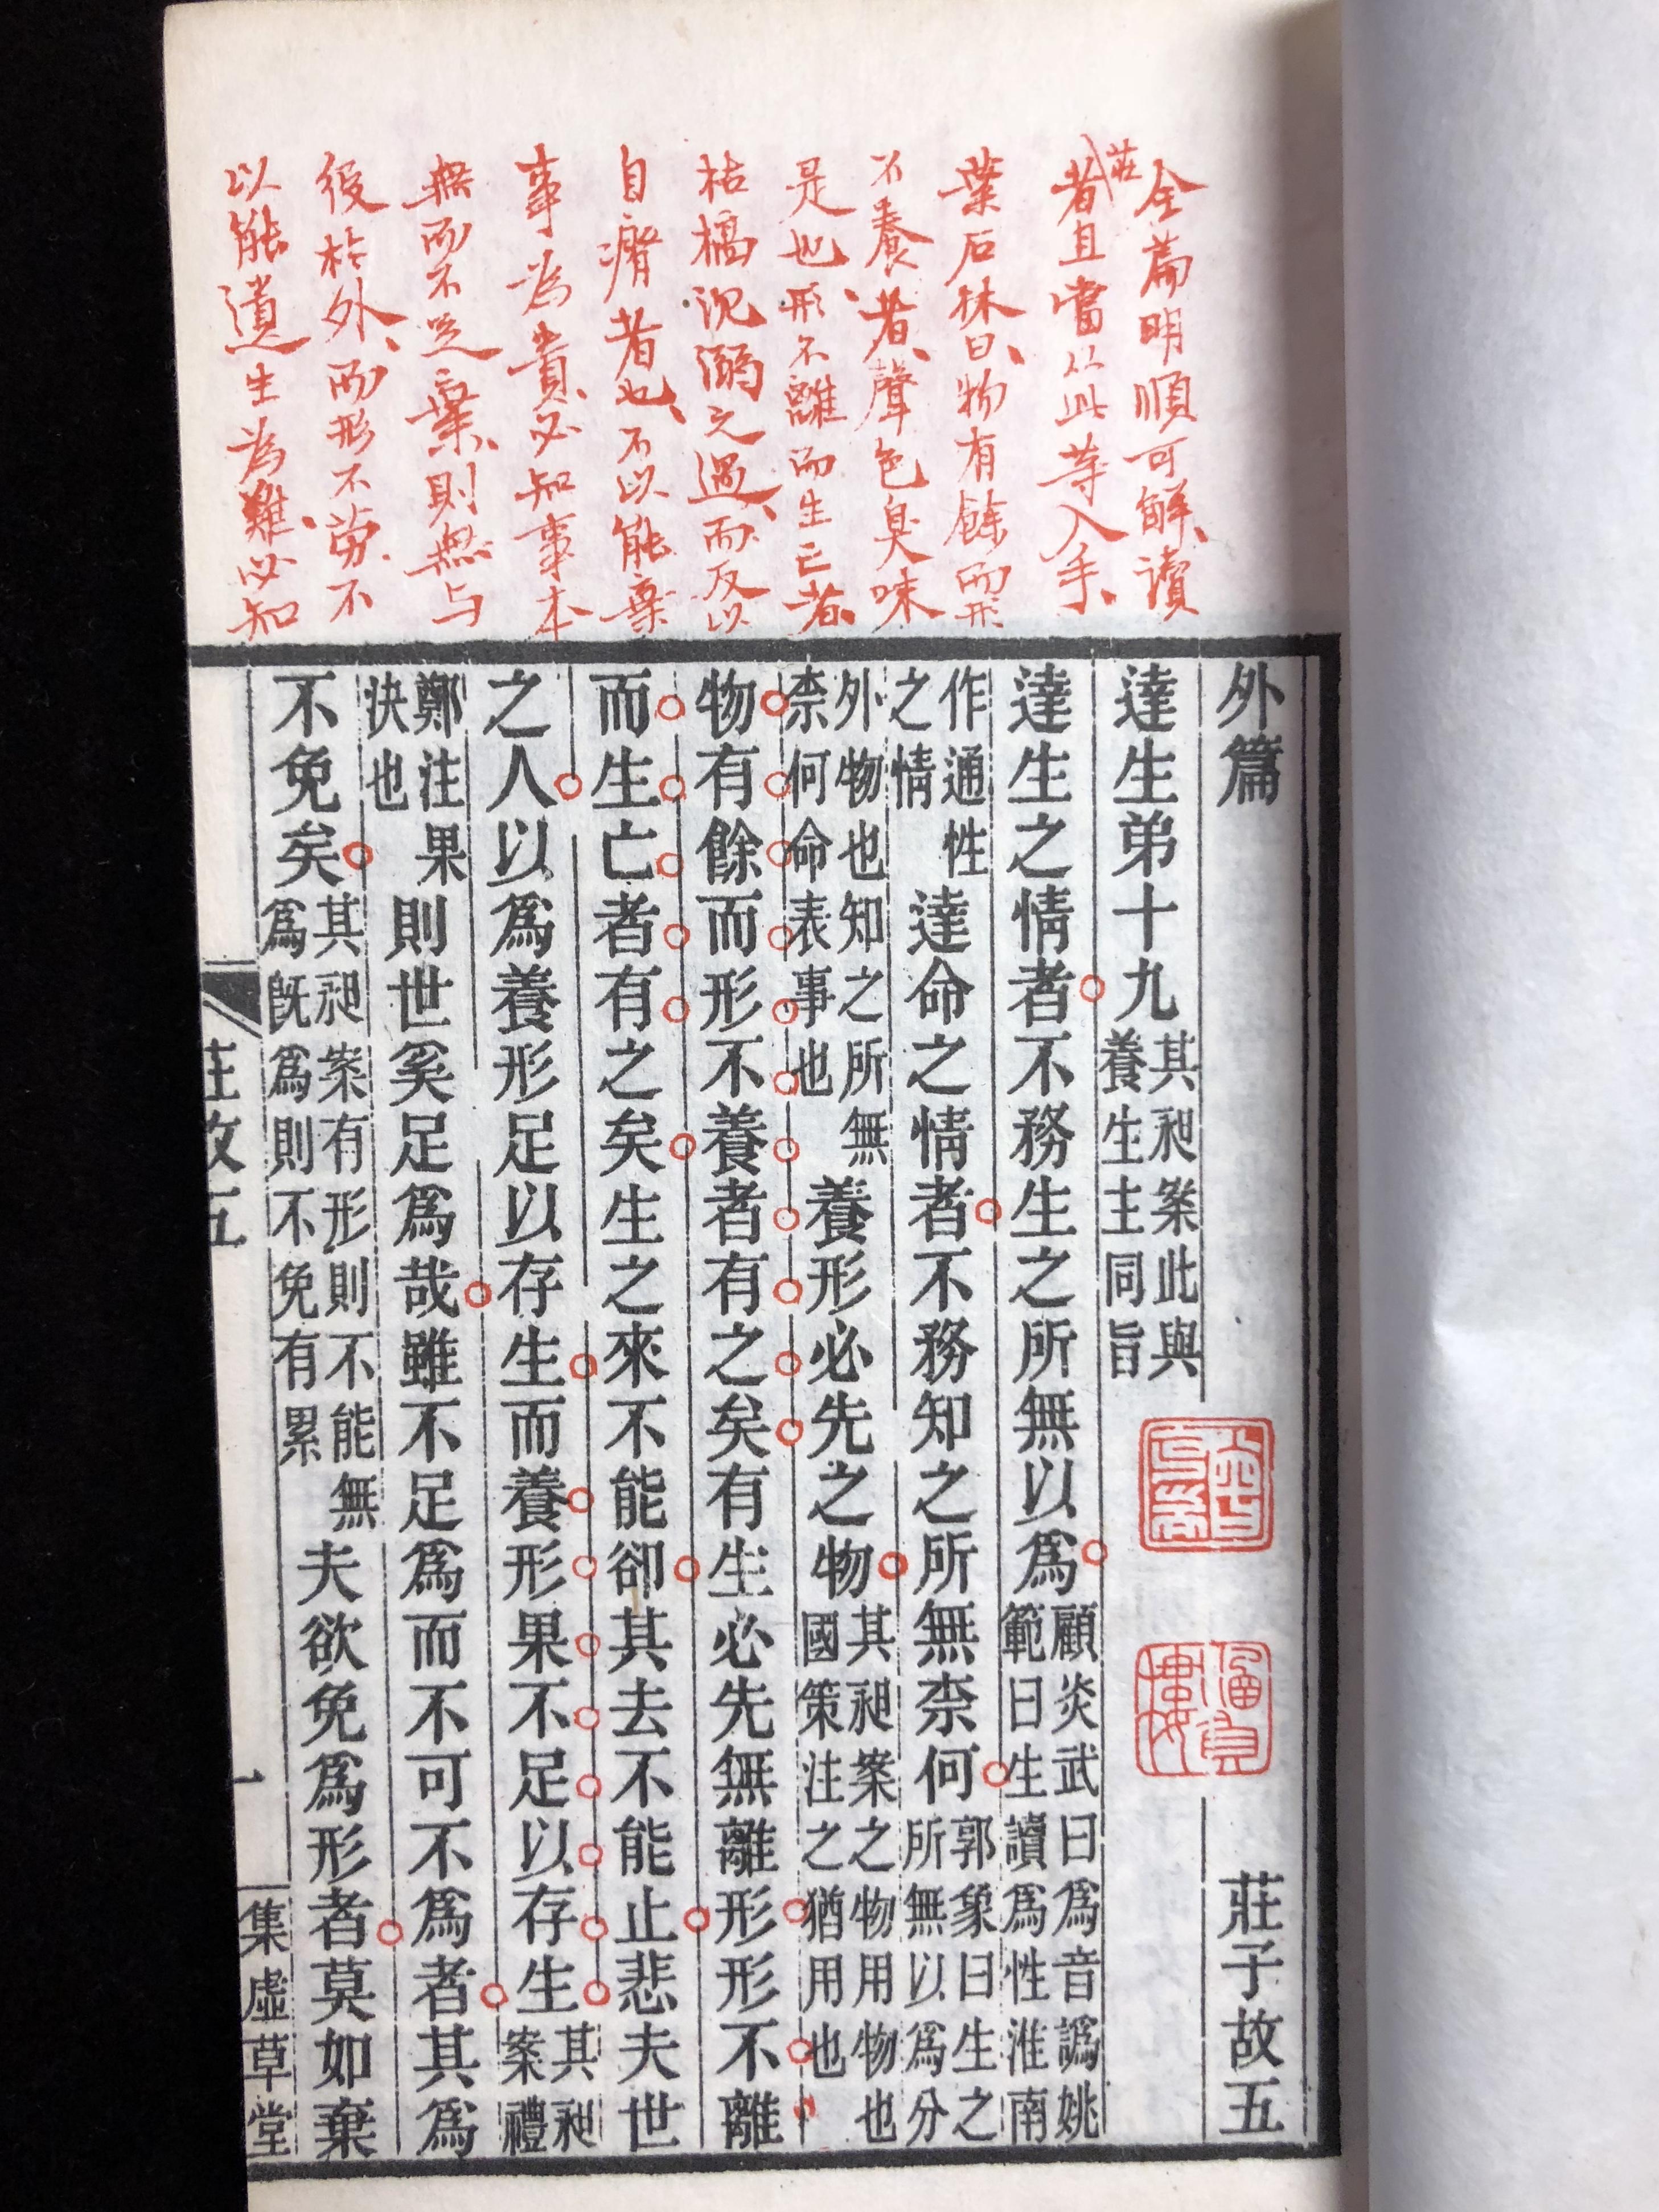 全篇明順可解、讀
莊
者且當從此等入手、
葉石林曰、物有餘而形
不養者、聲色臭味
是也、形不離而生亡者、
枯槁沉溺之過、而反以
自瘠者也、不以能棄
事為貴、必知事本
無而不足棄、則無与
役於外、而形不勞、不
以能遺生為難、必知
外篇
莊子故五
達生弟十九
其昶案此與
養生主同旨
達生之情者不務生之所無以爲
顧炎武曰爲音譌姚
範曰生讀爲性淮南
作通性
之情
達命之情者不務知之所無柰何
郭象曰生之
所無以爲分
外物也知之所無
柰何命表事也
養形必先之物
其昶案之物用物也
國策注之猶用也
物有餘而形不養者有之矣有生必先無離形形不離
而生亡者有之矣生之來不能卻其去不能止悲夫世
之人以爲養形足以存生而養形果不足以存生
其昶
案禮
鄭注果
決也
則世奚足爲哉雖不足爲而不可不爲者其爲
不免矣
其昶案有形則不能無
爲旣爲則不免有累
夫欲免爲形者莫如棄
莊故五
一
集虛草堂